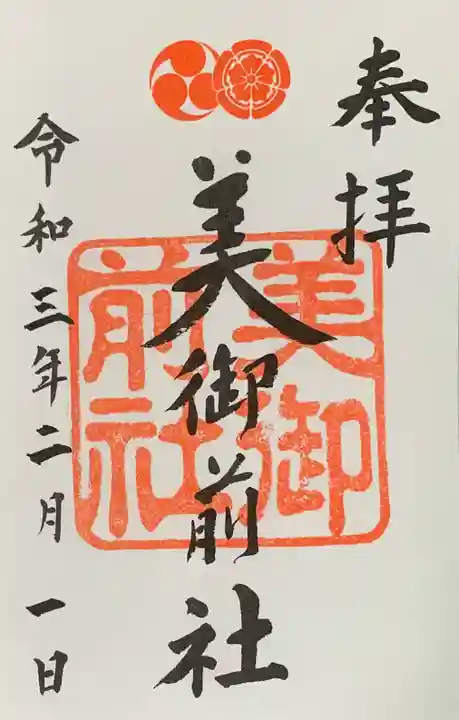 奉拝
美御前社
美御前社
令和三年二月一日